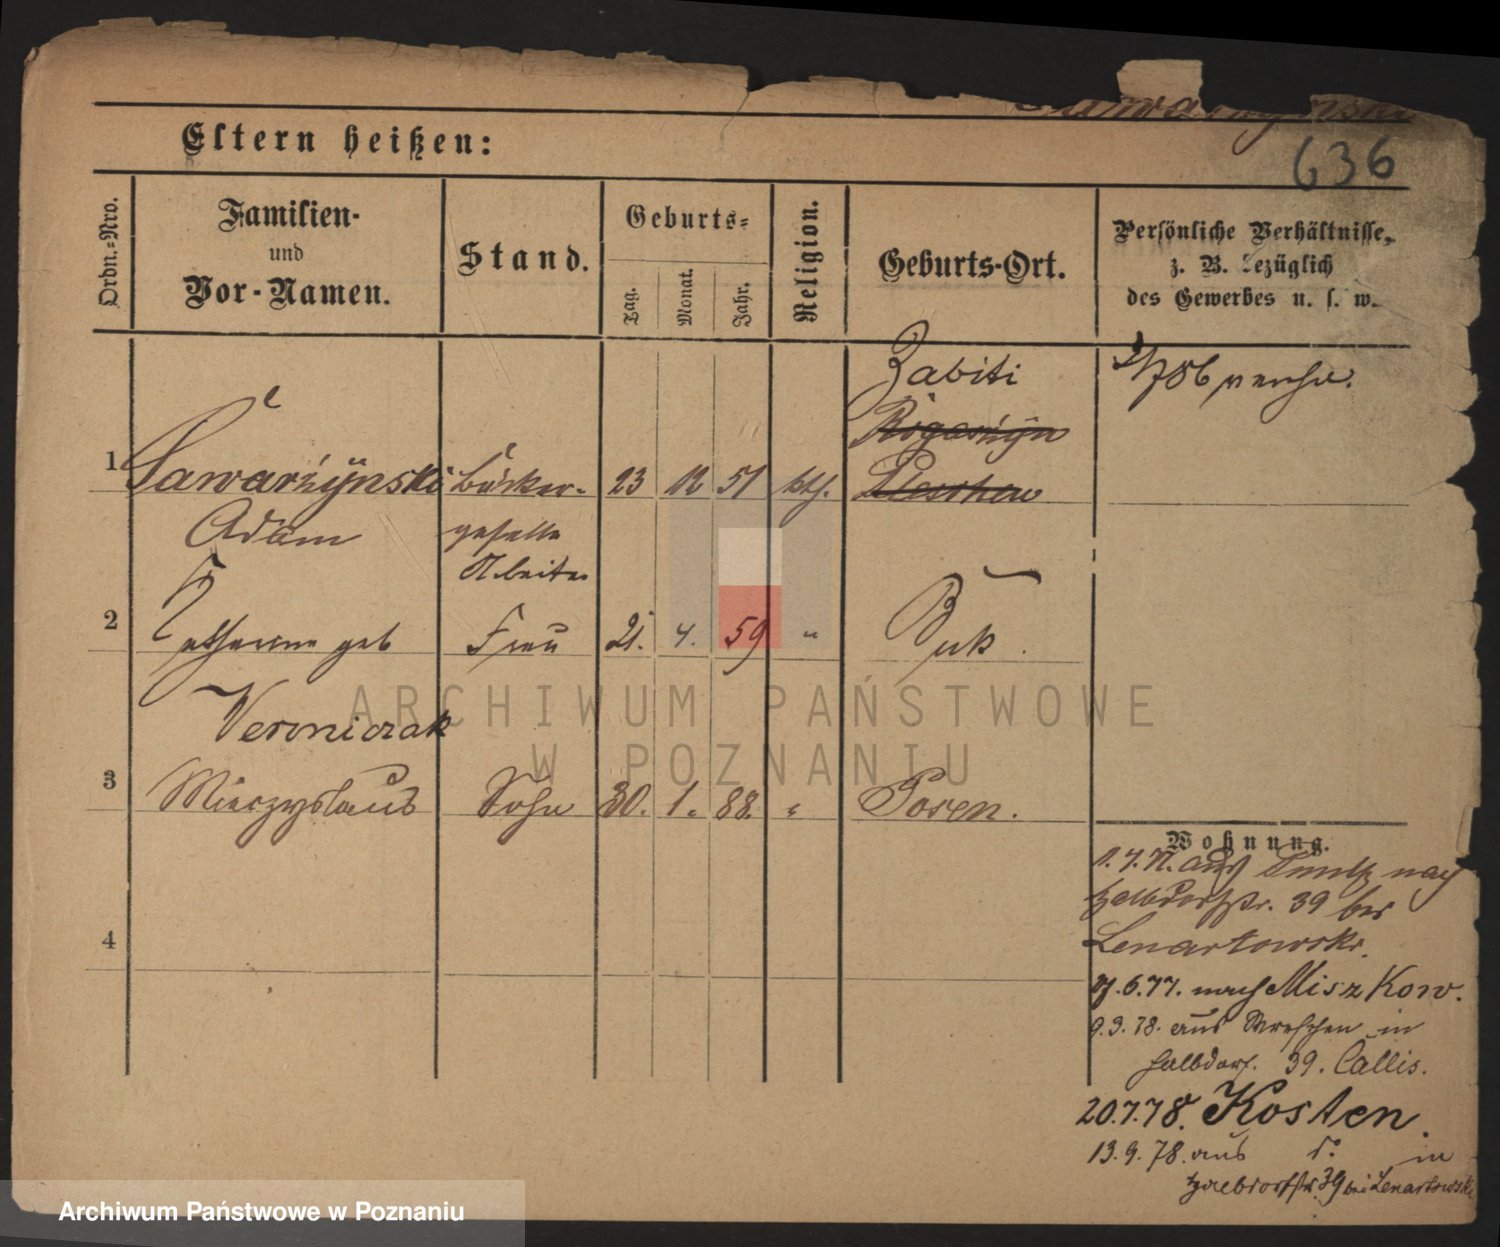 Eltern heißen:
636
Ordn.-Nro.
Familien-
und
Vor-Namen.
Stand.
Geburts-
Tag.
Monat.
Jahr.
Religion.
Geburts-Ort.
Persönliche Verhältnisse,
z. B. bezüglich
des Gewerbes u. s. w.
Zabiti
1 Sawarżynski Bäcker- 23 12 51 kth. Pleschen
Adam geselle
Arbeiter
2 Katharina geb Frau 21. 4. 59 " Buk.
Veroniczak
3 Mieczyslaus Sohn 30. 1. 88. " Posen.
4
Wohnung.
nach
Halbdorfstr. 39 bei
Lenartowski.
6.77. nach Miszkow.
9.3.78. aus Wreschen in
Halbdorf. 39. Callis.
20.7.78. Kosten.
13.9.78. aus do in
Halbdorfstr 39 bei Lenartowski
ARCHIWUM PAŃSTWOWE
W POZNANIU
Archiwum Państwowe w Poznaniu